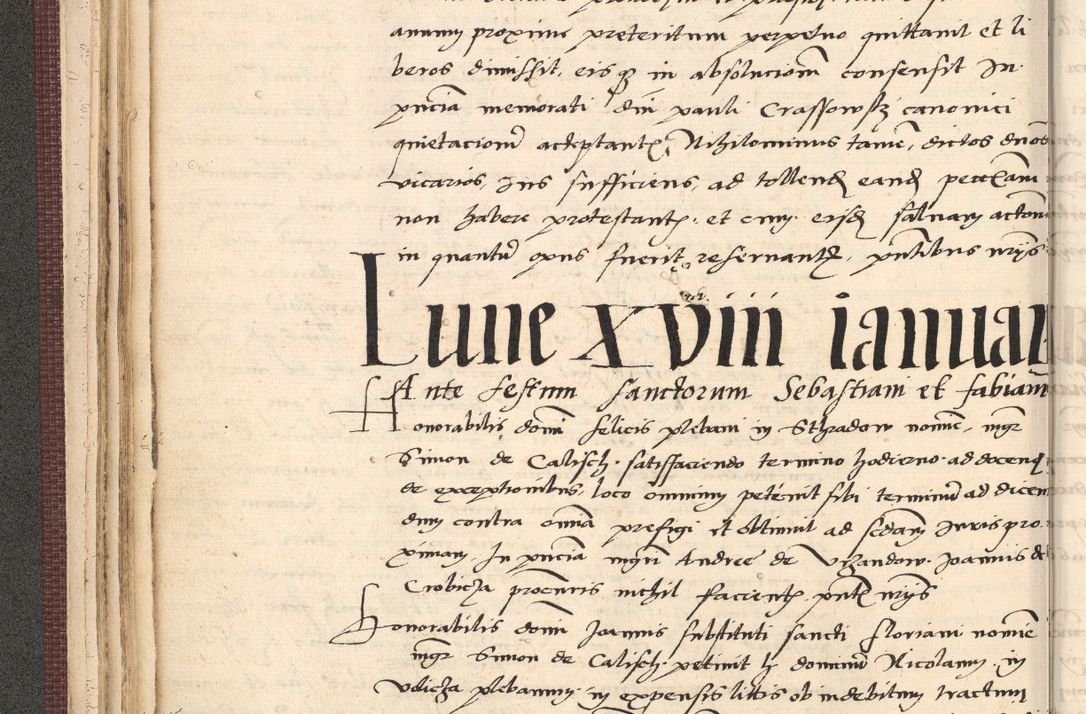 annum proximum preteritum perpetuo quittavit et li
beros dimissit, eisque in absolucionem consensit In
pnciam memorati dni pauli Crassowsky canonici
quietacionem acceptantis Nihilominus tamen, dictos dnos
vicarios, Ius sufficiens, ad tollend eand
non habere protestantis, et cum eisd salvam actionem
in quantum opus fuerit reservantis, pntibus nrys
Lune xviii ianuar
Ante festum sanctorum Sebastiani et fabiani
Honorabilis domini felicis plebani in Sthradow nomine, mgr
Simon de Calisch satisfaciendo termino hodierno ad docend
de exceptionibus, loco omnium petivit sibi terminum ad dicen
dum contra omnia prefigi et obtinuit ad sedam Iuris pro
ximam In pnciam mgri Andree de Vrzandow Joannis de
Crobicza procuris nichil facientis pntibus nrys
Honorabilis domini Joannis substituti sancti floriani nomine
mgr Simon de Calisch petivit h dominum Nicolaum in
Vdicza plebanum in expensis littis ob indebitum tractum